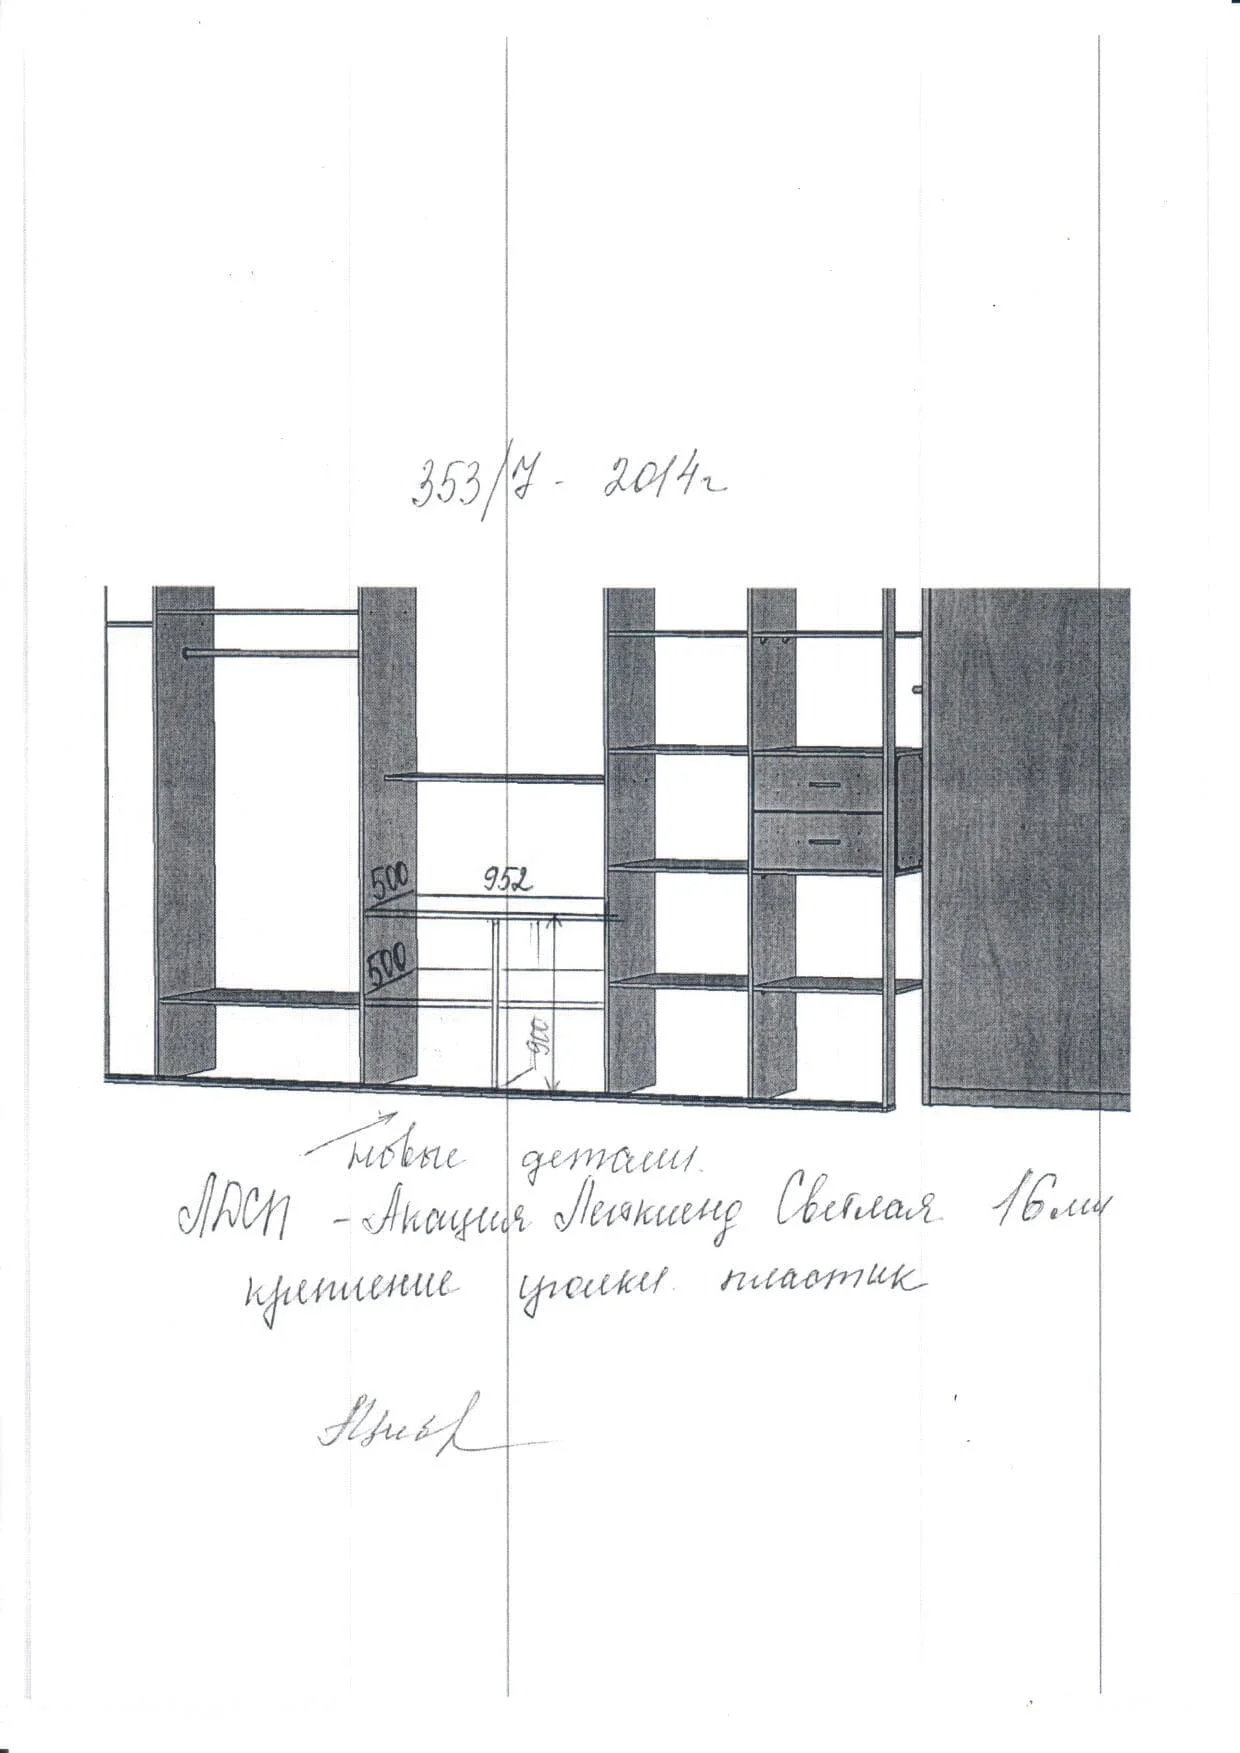 353/7 - 2014г
500
952
500
900
новые детали.
ЛДСП - Акация Лейкленд Светлая 16мм
крепление уголки пластик